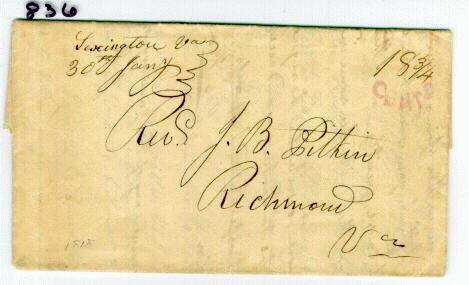 836
Lexington Va
30th Jany
18 3/4
CENTS
Revd. J. B. Pitkin
Richmond
Va